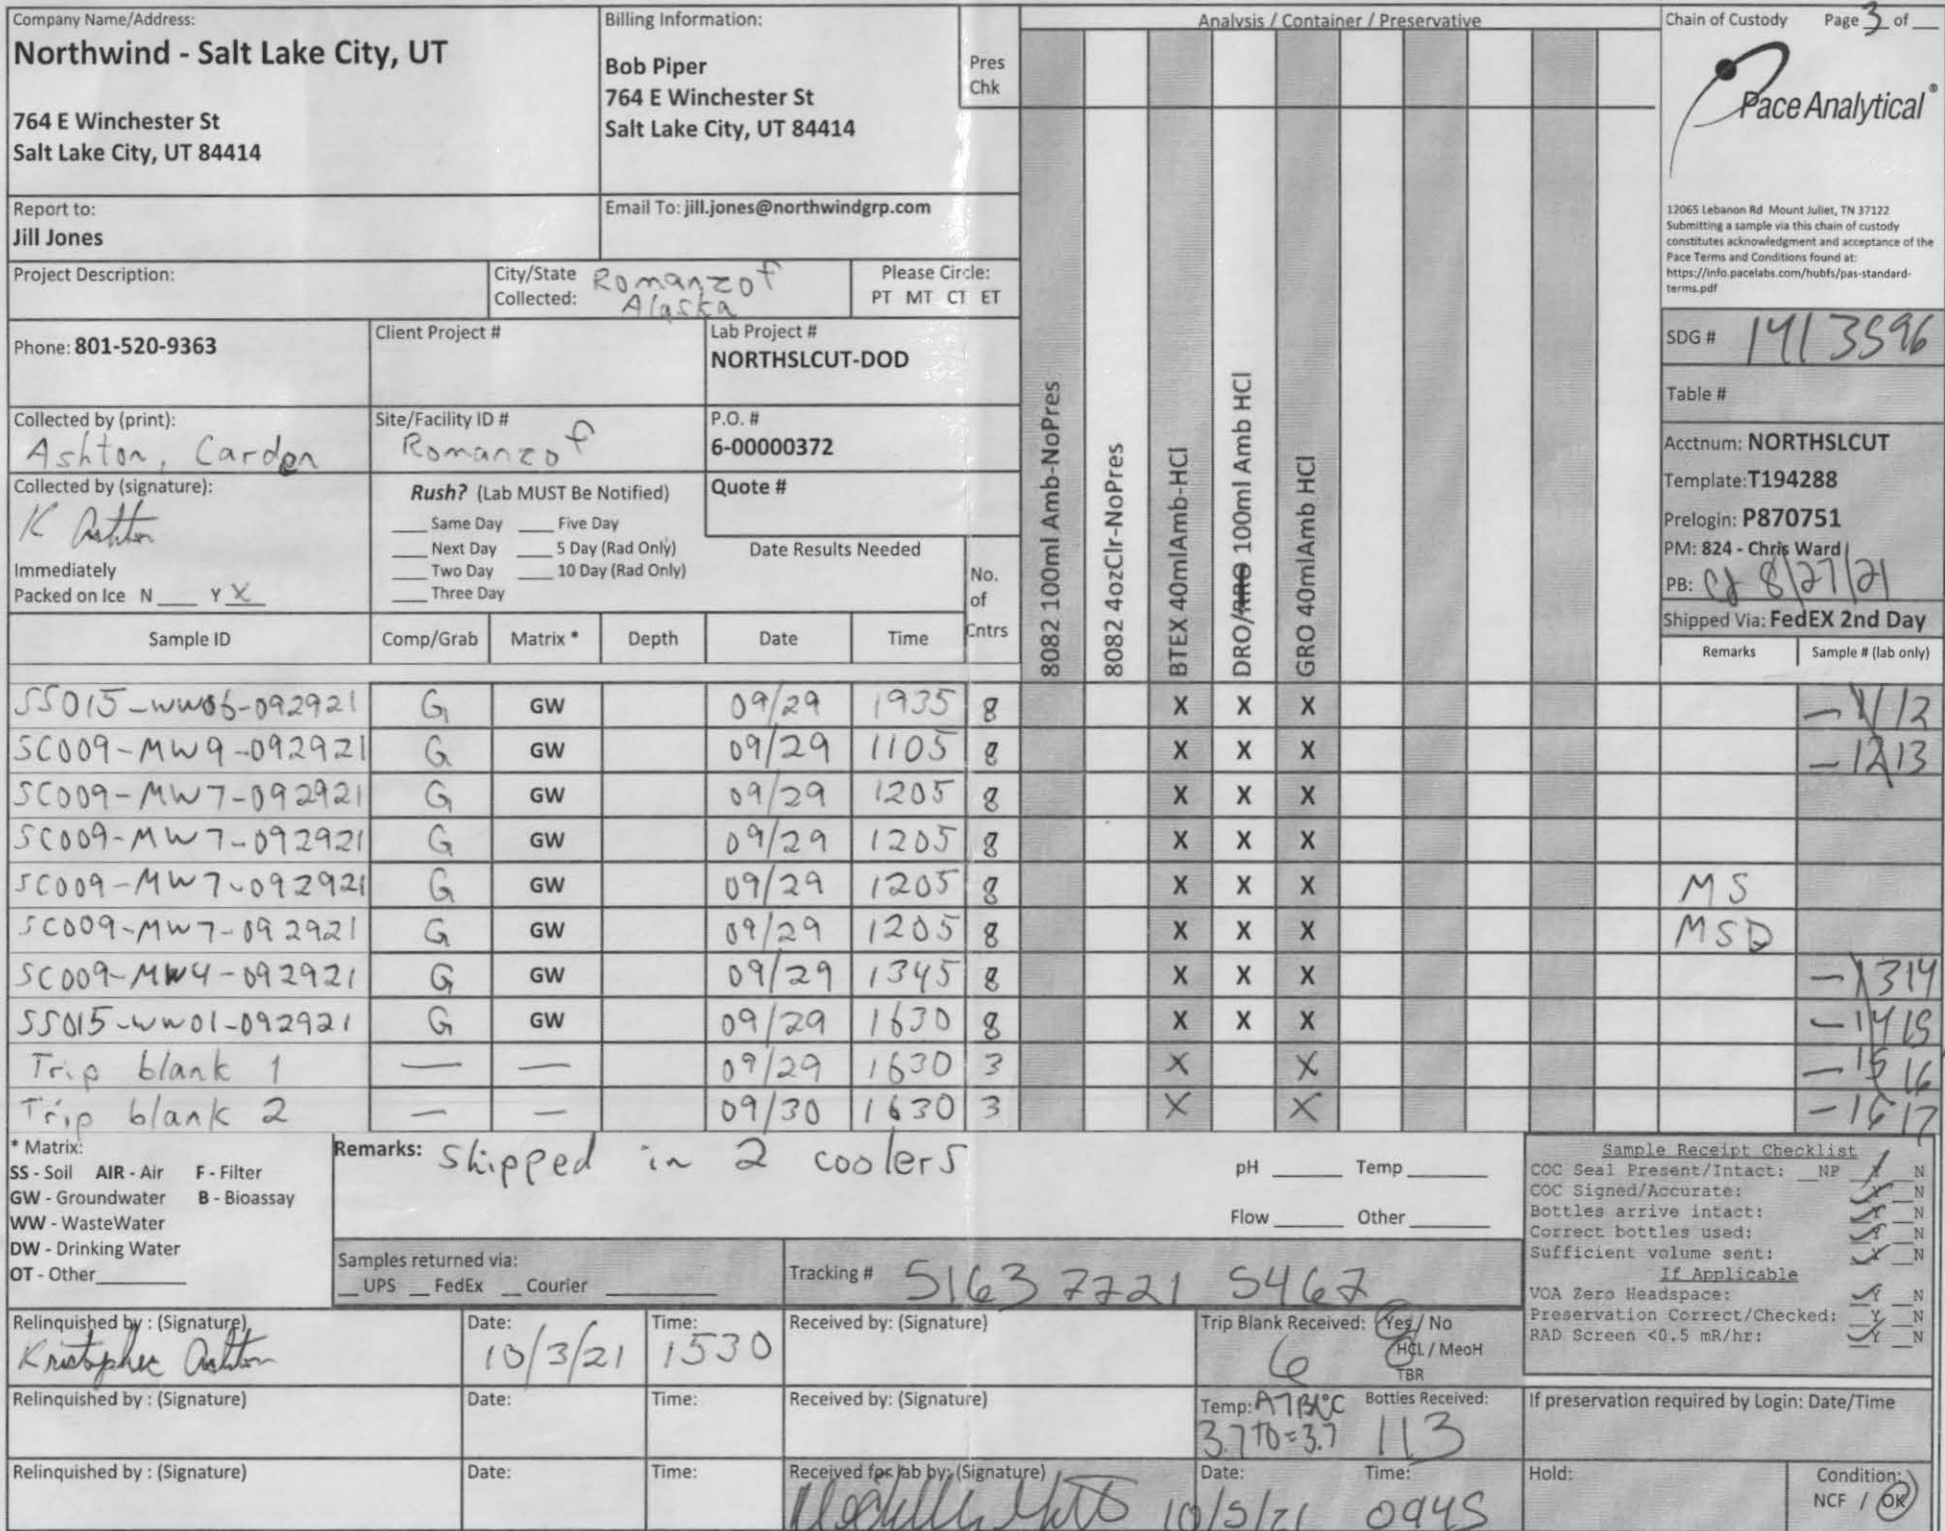 Company Name/Address:
Northwind - Salt Lake City, UT
764 E Winchester St
Salt Lake City, UT 84414
Billing Information:
Bob Piper
764 E Winchester St
Salt Lake City, UT 84414
Pres
Chk
Analysis / Container / Preservative
Chain of Custody Page 3 of __
Pace Analytical®
12065 Lebanon Rd Mount Juliet, TN 37122
Submitting a sample via this chain of custody
constitutes acknowledgment and acceptance of the
Pace Terms and Conditions found at:
https://info.pacelabs.com/hubfs/pas-standard-
terms.pdf
Report to:
Jill Jones
Email To: jill.jones@northwindgrp.com
Project Description:
City/State
Collected:
Romanzof
Alaska
Please Circle:
PT MT CT ET
Phone: 801-520-9363
Client Project #
Lab Project #
NORTHSLCUT-DOD
SDG #
Table #
Collected by (print):
Ashton, Carden
Site/Facility ID #
Romanzof
P.O. #
6-00000372
Acctnum: NORTHSLCUT
Template: T194288
Prelogin: P870751
PM: 824 - Chris Ward
PB: 8/27/21
Shipped Via: FedEX 2nd Day
Collected by (signature):
K Ashton
Immediately
Packed on Ice N ___ Y X
Rush? (Lab MUST Be Notified)
___ Same Day ___ Five Day
___ Next Day ___ 5 Day (Rad Only)
___ Two Day ___ 10 Day (Rad Only)
___ Three Day
Quote #
Date Results Needed
No.
of
Cntrs
8082 100ml Amb-NoPres
8082 4ozClr-NoPres
BTEX 40mlAmb-HCl
DRO/RRO 100ml Amb HCl
GRO 40mlAmb HCl
Sample ID Comp/Grab Matrix * Depth Date Time Remarks Sample # (lab only)
SS015-WW06-092921 G GW 09/29 1935 8 X X X -12
SC009-MW9-092921 G GW 09/29 1105 8 X X X -13
SC009-MW7-092921 G GW 09/29 1205 8 X X X
SC009-MW7-092921 G GW 09/29 1205 8 X X X
SC009-MW7-092921 G GW 09/29 1205 8 X X X MS
SC009-MW7-092921 G GW 09/29 1205 8 X X X MSD
SC009-MW4-092921 G GW 09/29 1345 8 X X X -14
SS015-WW01-092921 G GW 09/29 1630 8 X X X -15
Trip blank 1 — — 09/29 1630 3 X X -16
Trip blank 2 — — 09/30 1630 3 X X -17
* Matrix:
SS - Soil AIR - Air F - Filter
GW - Groundwater B - Bioassay
WW - WasteWater
DW - Drinking Water
OT - Other
Remarks: Shipped in 2 coolers
pH ___ Temp ___
Flow ___ Other ___
Samples returned via:
__ UPS __ FedEx __ Courier
Tracking # 5163 7721 5467
Sample Receipt Checklist
COC Seal Present/Intact: __NP Y N
COC Signed/Accurate: Y N
Bottles arrive intact: Y N
Correct bottles used: Y N
Sufficient volume sent: Y N
If Applicable
VOA Zero Headspace: Y N
Preservation Correct/Checked: Y N
RAD Screen <0.5 mR/hr: Y N
Relinquished by : (Signature)
Kristopher Ashton
Date: 10/3/21
Time: 1530
Received by: (Signature)
Trip Blank Received: Yes / No
6 HCL / MeoH
TBR
Relinquished by : (Signature) Date: Time: Received by: (Signature)
Temp: °C Bottles Received:
3.7+0=3.7 113
If preservation required by Login: Date/Time
Relinquished by : (Signature) Date: Time: Received for lab by: (Signature)
Date: 10/5/21
Time: 0945
Hold:
Condition:
NCF / OK